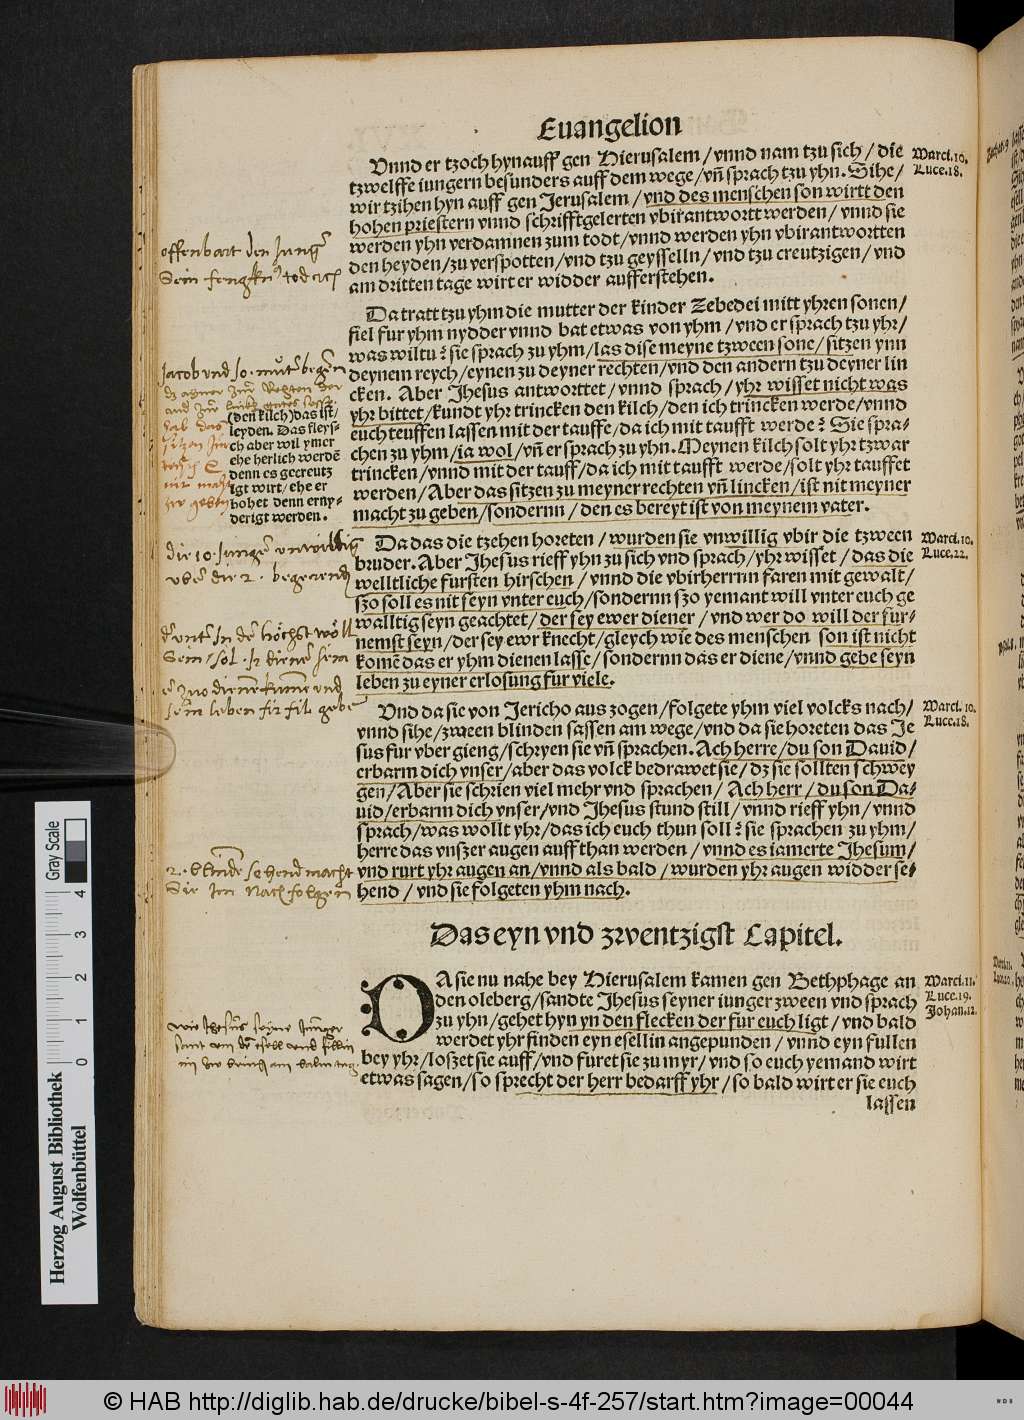 Euangelion
Vnnd er tzoch hynauff gen Hierusalem / vnnd nam tzu sich / die
tzwelffe iungern besunders auff dem wege / vñ sprach tzu yhn. Sihe /
wir tzihen hyn auff gen Jerusalem / vnd des menschen son wirtt den
hohen priestern vnnd schrifftgelerten vbirantwortt werden / vnnd sie
werden yhn verdamnen zum todt / vnnd werden yhn vbirantwortten
den heyden / zu verspotten / vnd tzu geysselln / vnd tzu creutzigen / vnd
am dritten tage wirt er widder aufferstehen.
Marci. 10.
Luce. 18.
offenbart den
Da tratt tzu yhm die mutter der kinder Zebedei mitt yhren sonen /
fiel fur yhm nydder vnnd bat etwas von yhm / vnd er sprach tzu yhr /
was wiltu? sie sprach zu yhm / las dise meyne tzween sone / sitzen ynn
deynem reych / eynen zu deyner rechten / vnd den andern tzu deyner lin
cken. Aber Jhesus antworttet / vnnd sprach / yhr wisset nicht was
yhr bittet / kundt yhr trincken den kilch / den ich trincken werde / vnnd
euch teuffen lassen mit der tauffe / da ich mit taufft werde? Sie spra-
chen zu yhm / ia wol / vñ er sprach zu yhn. Meynen kilch solt yhr tzwar
trincken / vnnd mit der tauff / da ich mit taufft werde / solt yhr tauffet
werden / Aber das sitzen zu meyner rechten vñ lincken / ist nit meyner
macht zu geben / sondernn / den es bereyt ist von meynem vater.
(den kilch) das ist /
leyden. Das fleys-
ch aber wil ymer
ehe herlich werdē
denn es gecreutz
igt wirt / ehe er
hohet denn erny-
derigt werden.
Da das die tzehen horeten / wurden sie vnwillig vbir die tzween
bruder. Aber Jhesus rieff yhn zu sich vnd sprach / yhr wisset / das die
welltliche fursten hirschen / vnnd die vbirherrnn faren mit gewalt /
szo soll es nit seyn vnter euch / sondernn szo yemant will vnter euch ge
walltig seyn geachtet / der sey ewer diener / vnd wer do will der fur-
nemst seyn / der sey ewr knecht / gleych wie des menschen son ist nicht
komē das er yhm dienen lasse / sondernn das er diene / vnnd gebe seyn
leben zu eyner erlosung fur viele.
Marci. 10.
Luce. 22.
Vnd da sie von Jericho aus zogen / folgete yhm viel volcks nach /
vnnd sihe / zween blinden sassen am wege / vnd da sie horeten das Je
sus fur vber gieng / schryen sie vñ sprachen. Ach herre / du son Dauid /
erbarm dich vnser / aber das volck bedrawet sie / dz sie sollten schwey
gen / Aber sie schrien viel mehr vnd sprachen / Ach herr / du son Da-
uid / erbarm dich vnser / vnd Jhesus stund still / vnnd rieff yhn / vnnd
sprach / was wollt yhr / das ich euch thun soll? sie sprachen zu yhm /
herre das vnszer augen auff than werden / vnnd es iamerte Jhesum /
vnd rurt yhr augen an / vnnd als bald / wurden yhr augen widder se-
hend / vnd sie folgeten yhm nach.
Marci. 10.
Luce. 18.
Das eyn vnd zwentzigst Capitel.
DA sie nu nahe bey Hierusalem kamen gen Bethphage an
den oleberg / sandte Jhesus seyner iunger zween vnd sprach
zu yhn / gehet hyn yn den flecken der fur euch ligt / vnd bald
werdet yhr finden eyn esellin angepunden / vnnd eyn fullen
bey yhr / loszet sie auff / vnd furet sie zu myr / vnd so euch yemand wirt
etwas sagen / so sprecht der herr bedarff yhr / so bald wirt er sie euch
lassen
Marci. 11.
Luce. 19.
Johan. 12.
Gray Scale
0 1 2 3 4
Herzog August Bibliothek
Wolfenbüttel
© HAB http://diglib.hab.de/drucke/bibel-s-4f-257/start.htm?image=00044